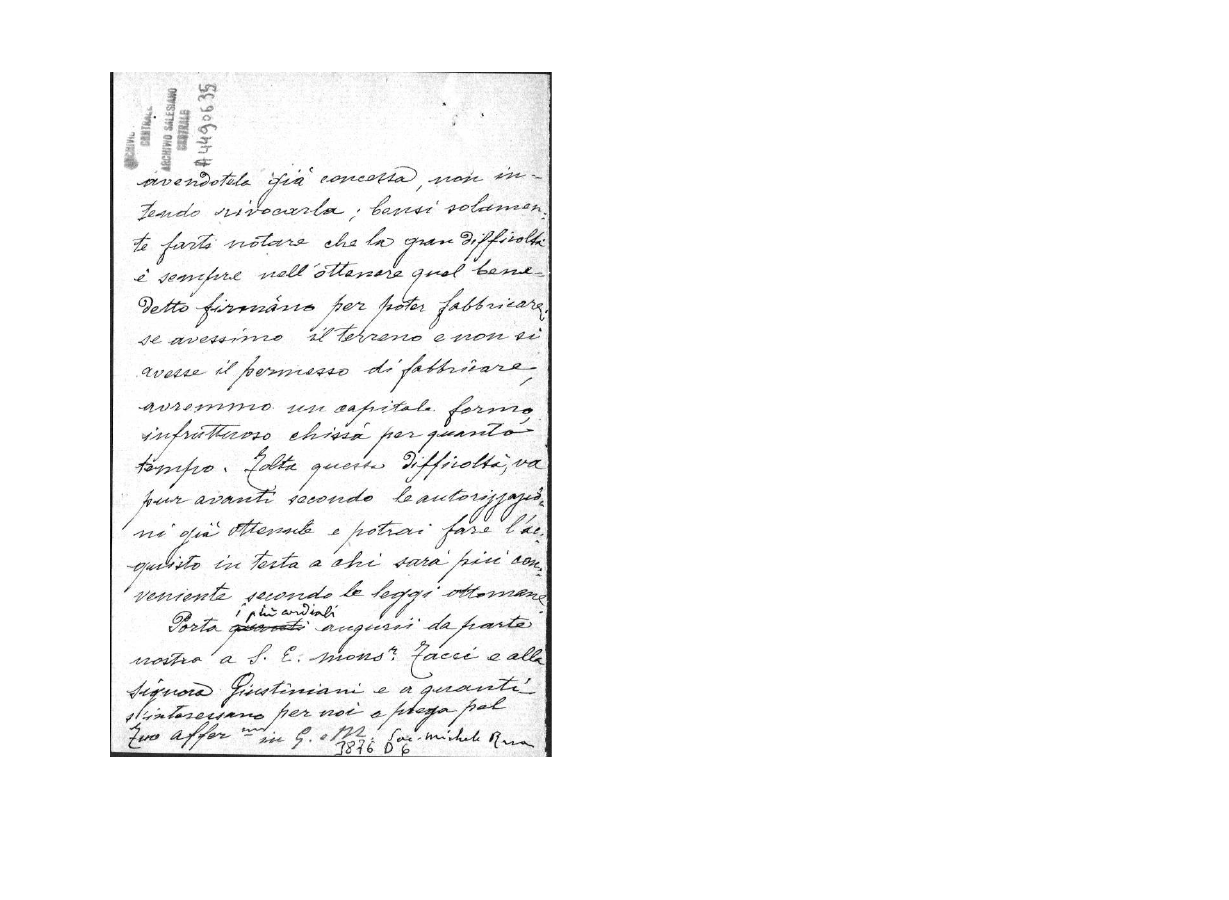 ARCHIVIO
CENTRALE
ARCHIVIO SALESIANO
CENTRALE
A4490635
avendotela già concessa, non in-
tendo rivocarla; bensì solamen-
te farti notare che la gran difficoltà
è sempre nell'ottenere quel bene-
detto firmáno per poter fabbricare;
se avessimo il terreno e non si
avesse il permesso di fabbricare,
avremmo un capitale fermo,
infruttuoso chissà per quanto
tempo. Tolta questa difficoltà, va
pur avanti secondo le autorizzazio-
ni già ottenute e potrai fare l'ac-
quisto in testa a chi sarà più con-
veniente secondo le leggi ottomane.
i più cordiali
Porta augurii da parte
nostra a S. E. monsr. Zacci e alla
signora Giustiniani e a quanti
s'interessano per noi e prega pel
Tuo affer mo in G. e M. Sac. Michele Rua
3876 D 6